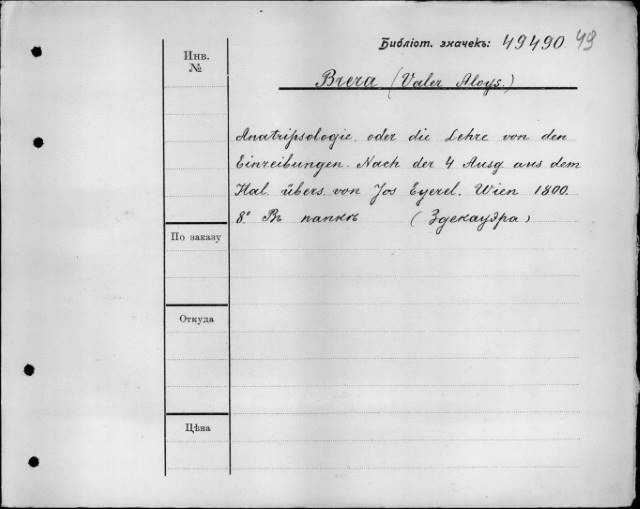 Библіот. значекъ: 49490 49
Инв. №
Brera (Valer Aloys.)
Anatripsologie oder die Lehre von den
Einreibungen. Nach der 4 Ausg aus dem
Ital. übers. von Jos Eyerel. Wien 1800.
8° Въ папкѣ (Здекауэра)
По заказу
Откуда
Цѣна